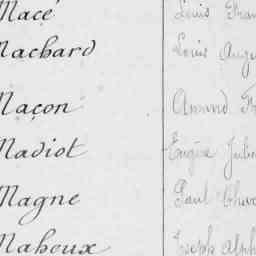 Macé Louis Fran
Machard Louis Augu
Maçon Amand Fr
Madiot Eugène Julie
Magne Paul Char
Mahoux Joseph Alph